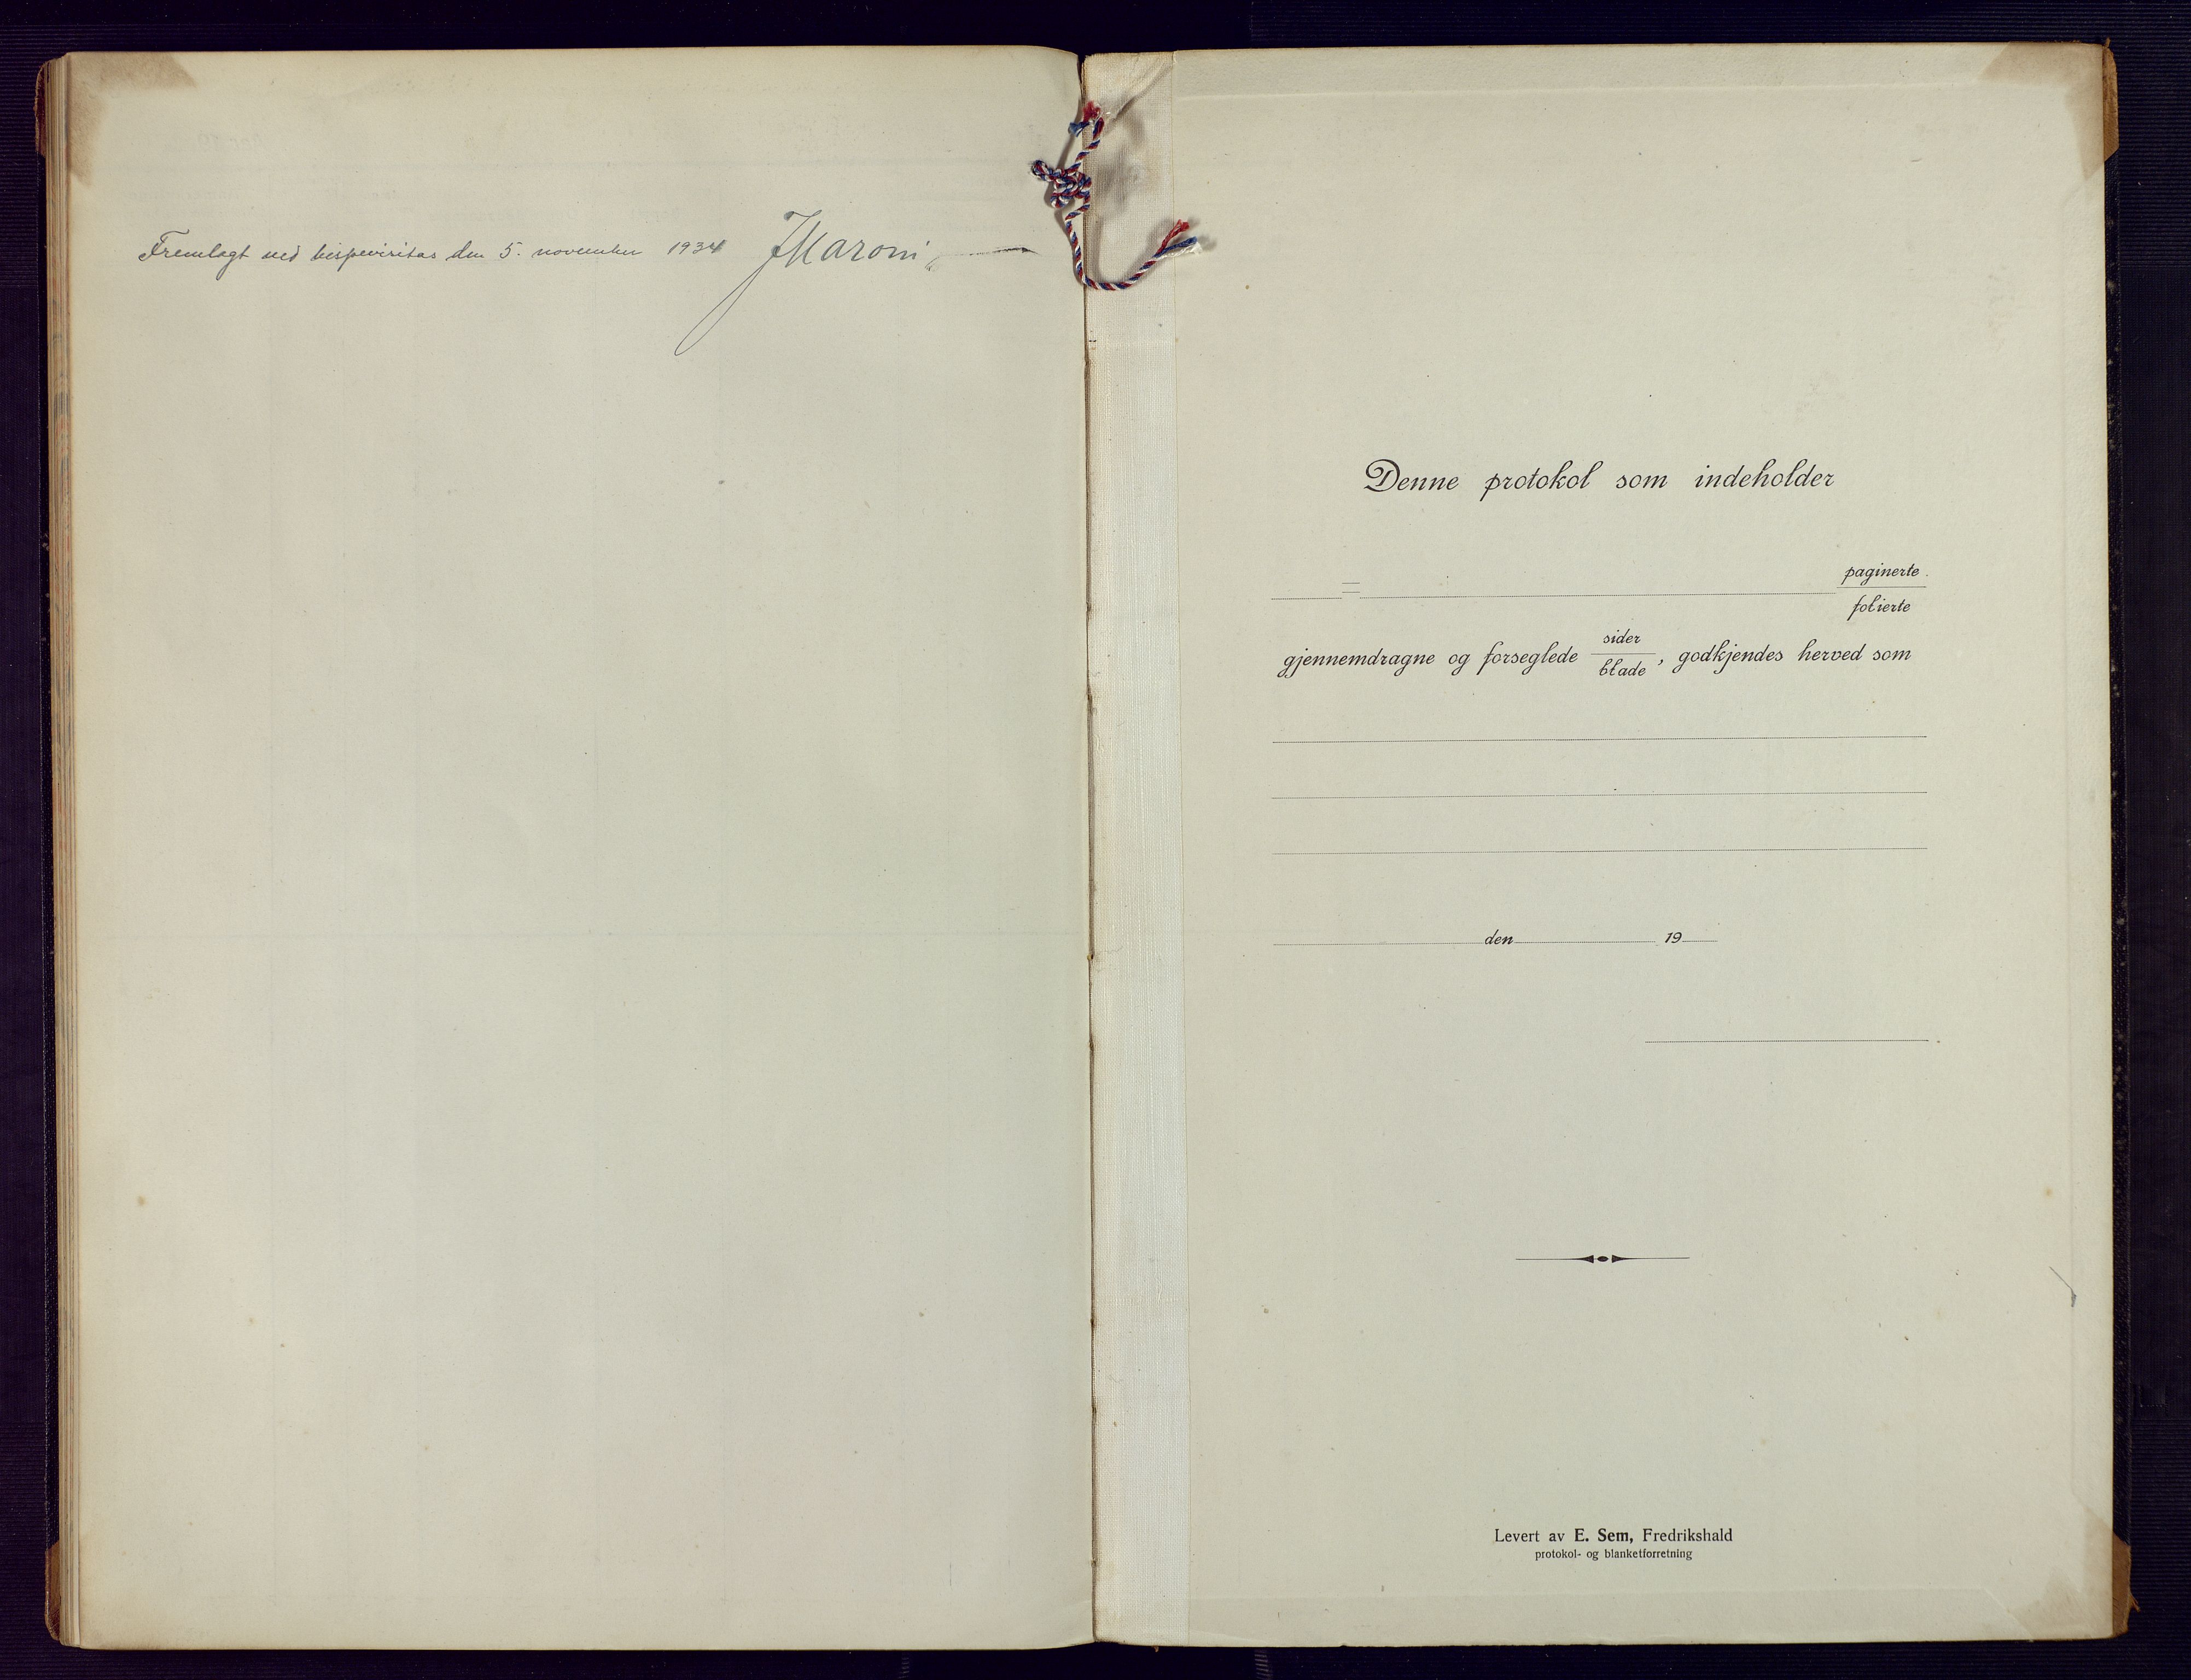 Fremlagt ved bispevisitas den 5. november 1934 JMaroni
Denne protokol som indeholder
=
paginerte
folierte
gjennemdragne og forseglede sider/blade, godkjendes herved som
den 19
Levert av E. Sem, Fredrikshald
protokol- og blanketforretning